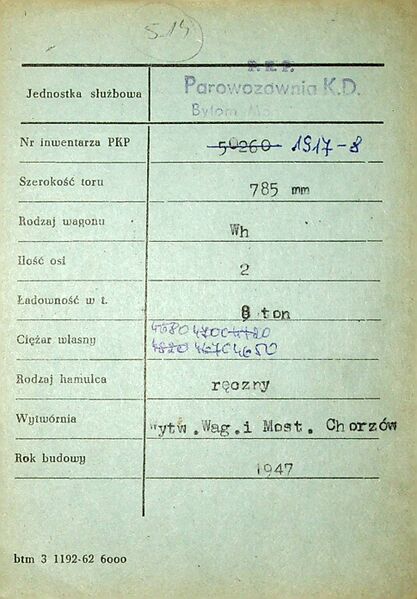 514
P.K.P.
Jednostka służbowa Parowozownia K.D.
Bytom
Nr inwentarza PKP 50260 1917-8
Szerokość toru 785 mm
Rodzaj wagonu Wh
Ilość osi 2
Ładowność w t. 8 ton
Ciężar własny 4680 4700 4480
4820 4670 4650
Rodzaj hamulca ręczny
Wytwórnia Wytw.Wag.i Most. Chorzów
Rok budowy 1947
btm 3 1192-62 6000